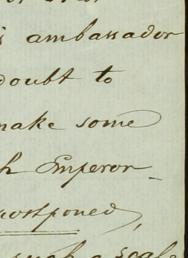 s ambassador
doubt to
make some
h Emperor
postponed,
such a scale